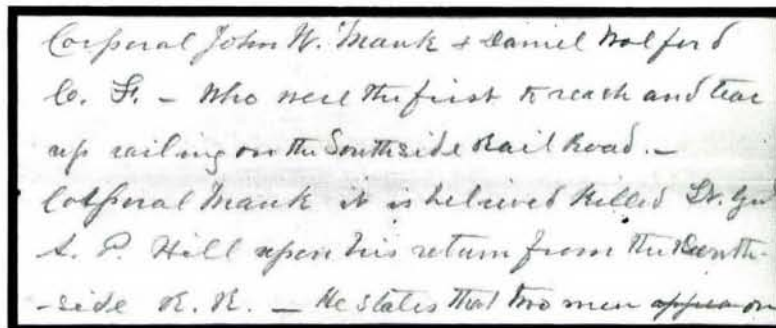 Corporal John W. Mauk & Daniel Wolford
Co. F. - Who were the first to reach and tear
up railing on the Southside Rail Road. -
Corporal Mauk it is believed killed Lt. Gen
A. P. Hill upon his return from the South-
-side R. R. - He states that two men on